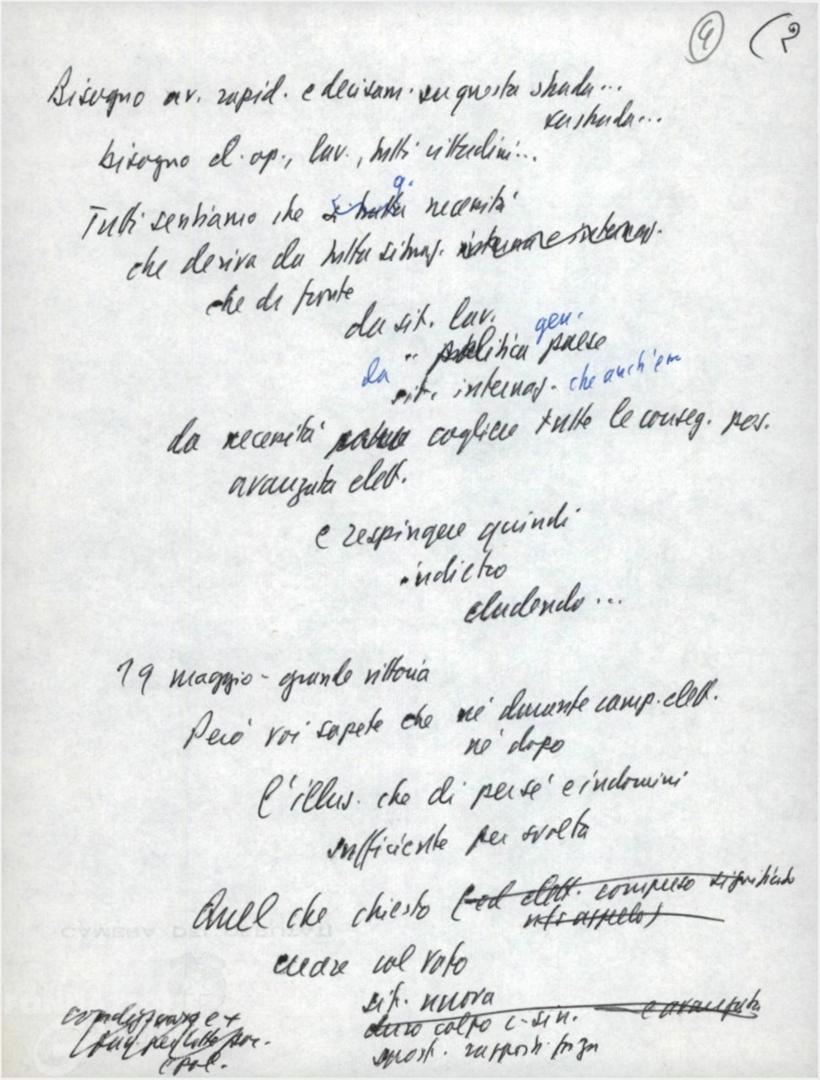 4 (2
Bisogno av. rapid. e decisam. su questa strada...
su strada...
bisogno d. op., lav., tutti cittadini...
g.
Tutti sentiamo che si tratta necessità
che deriva da tutta situaz. internaz.
che di fronte
da sit. lav.
gen.
" politica paese
da sit. internaz. che anch'essa
da necessità cogliere tutte le conseg. pos.
avanzata elett.
e respingere quindi
indietro
eludendo...
19 maggio - grande vittoria
Però voi sapete che né durante camp. elett.
né dopo
l'illus. che di per sé e indomini
sufficiente per svolta
Quell che chiesto (ed elett. compreso significato
ns. appello)
creare col voto
sit. nuova
duro colpo c-sin. e avanzata
spost. rapporti forza
pol.
CAMERA DEI DEPUTATI